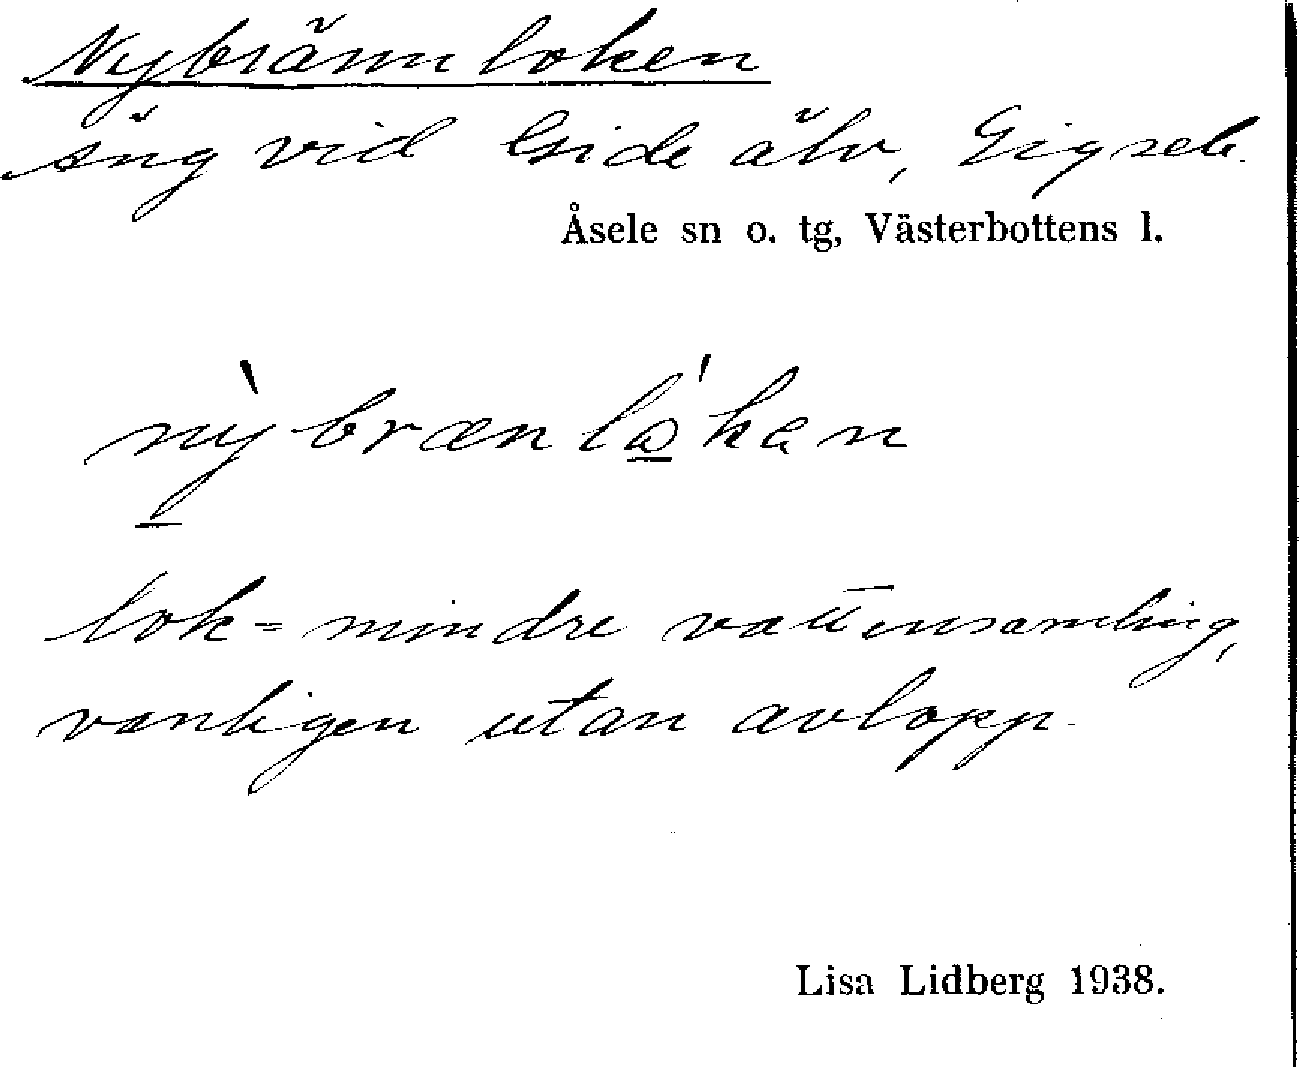 Nybränn loken
äng vid Gide älv, Gigsele.
Åsele sn o. tg, Västerbottens l.
nỳbrænlɷ̲́kan
lok = mindre vattensamling,
vanligen utan avlopp.
Lisa Lidberg 1938.